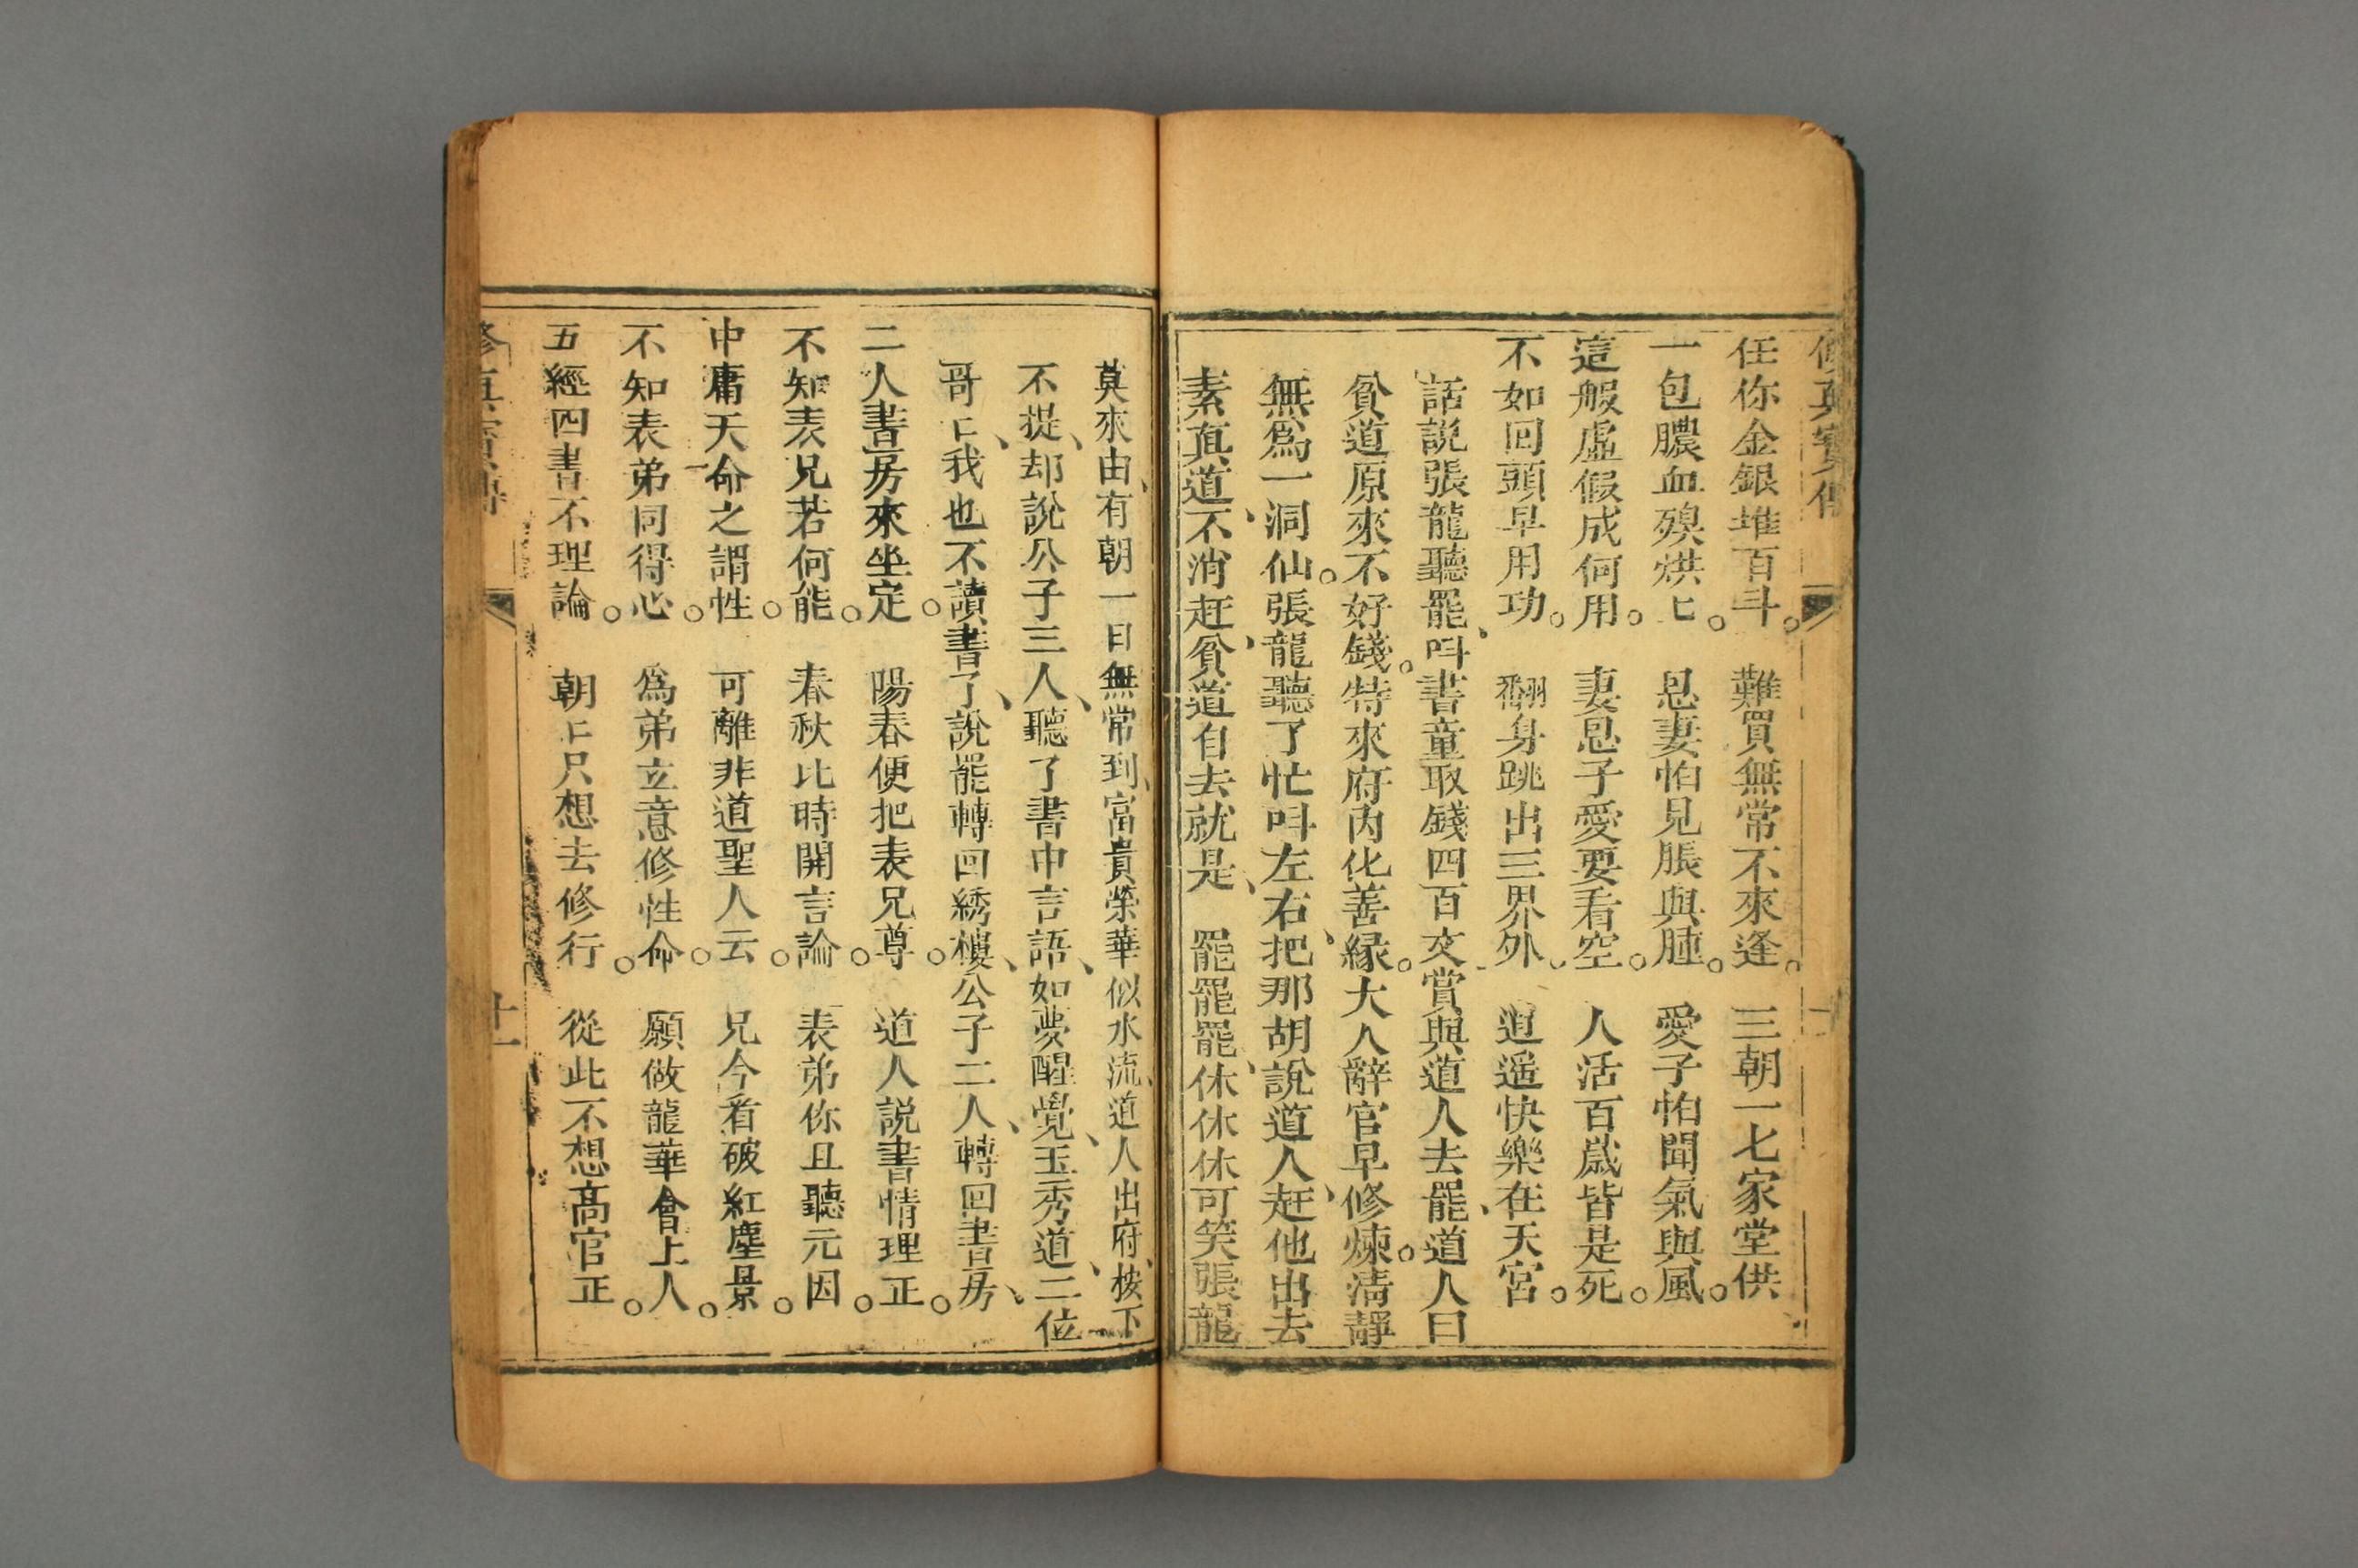 修真寶傳
任你金銀堆百斗。難買無常不來逢。三朝一七家堂供
一包膿血殠烘〻。恩妻怕見脹與腫。愛子怕聞氣與風。
這般虛假成何用。妻恩子愛要看空。人活百歲皆是死。
不如回頭早用功。翻身跳出三界外、逍遥快樂在天宮。
話說張龍聽罷、呌書童取錢四百文賞與道人去罷、道人曰
貧道原來不好錢。特來府內化善緣。大人辭官早修煉。清靜
無為一洞仙。張龍聽了忙呌左右、把那胡說道人、赶他出去
素真道、不消赶、貧道自去就是、罷罷罷、休休休可笑張龍
莫來由、有朝一日無常到、富貴榮華似水流、道人出府、按下
不提、却說公子三人、聽了書中言語、如夢醒覺、玉秀道、二位
哥〻、我也不讀書了、說罷轉回綉樓、公子二人、轉回書房、
二人書房來坐定。陽春便把表兄尊。道人説書情理正。
不知表兄若何能。春秋比時開言論。表弟你且聽元因。
中庸天命之謂性。可離非道聖人云。兄今看破紅塵景。
不知表弟同得心。為弟立意修性命。願做龍華會上人。
五經四書不理論。朝〻只想去修行。從此不想高官正。
修真寶傳 十一